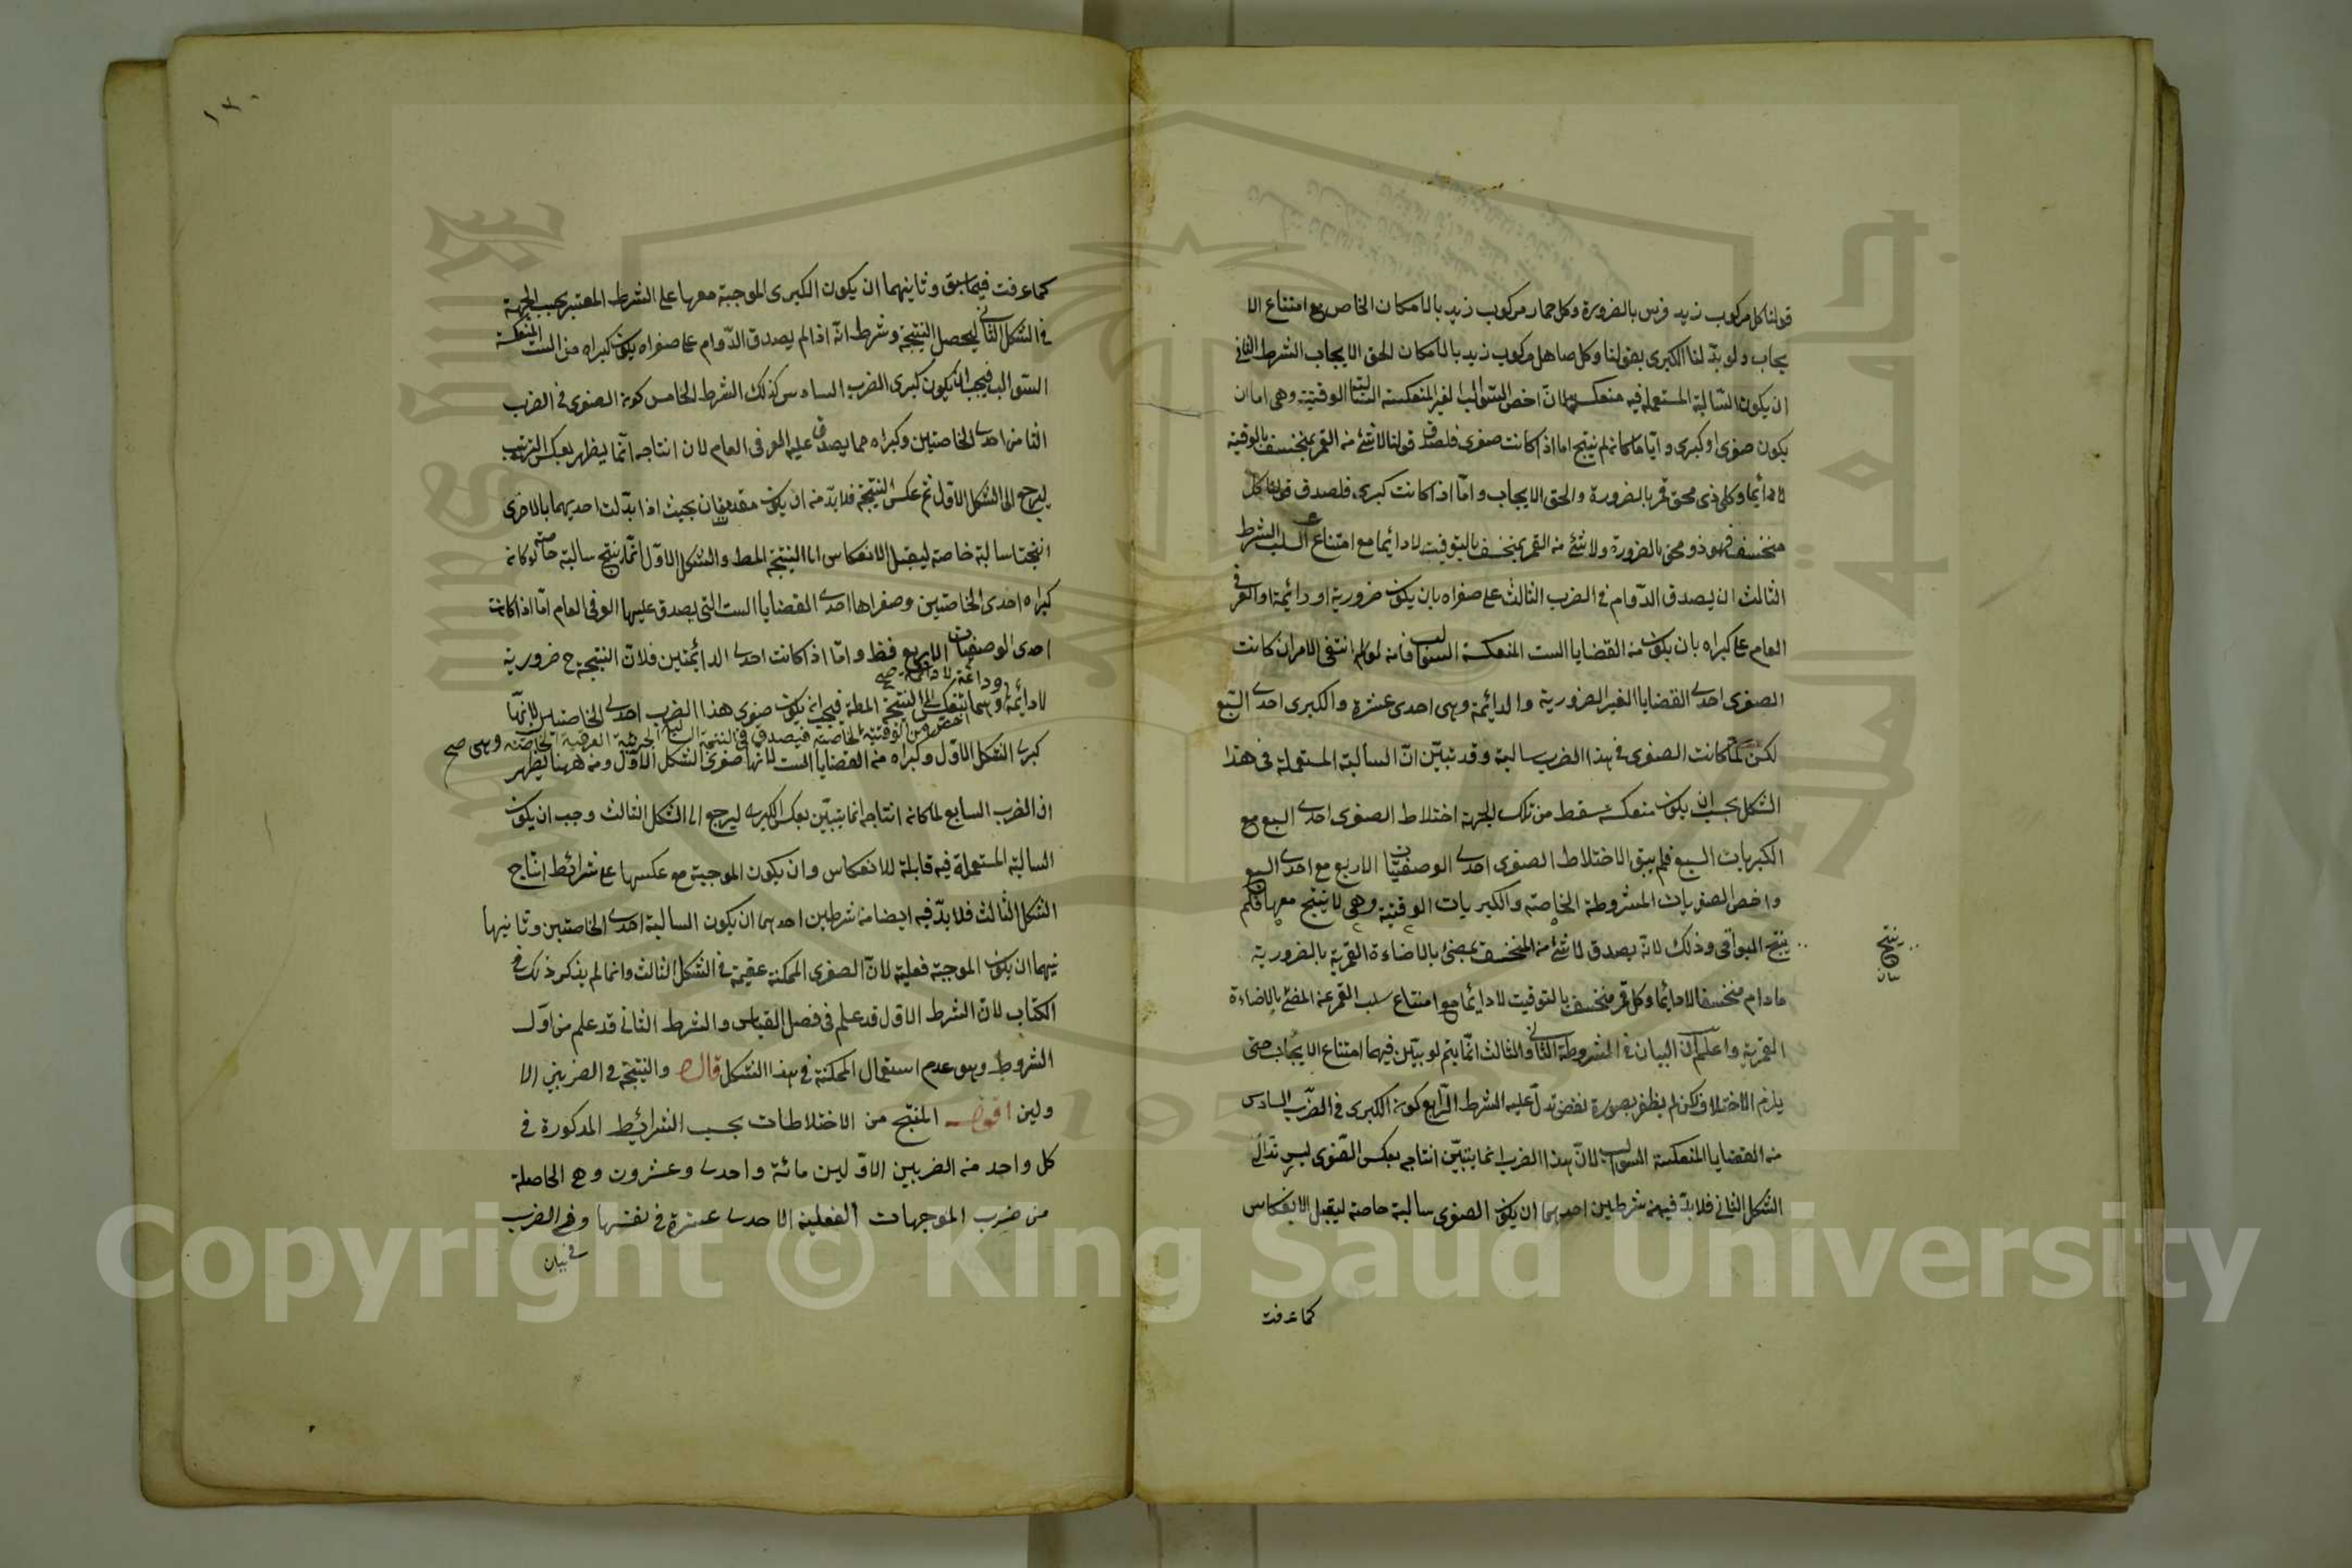 قولنا كل مركوب زيد فرس بالضرورة وكل حمار مركوب زيد بالامكان الخاص مع امتناع الا
يجاب ولو بدلنا الكبرى بقولنا وكل صاهل مركوب زيد بالامكان الحق الايجاب الشرط الثانى
ان يكون السالبة المستعملة فيه منعكسة لان اخص السوالب الغير المنعكسة السالبة الوقتية وهى اما ان
يكون صغرى او كبرى وايا ما كانه لم ينتج اما اذا كانت صغرى فلصدق قولنا لا شئ من القمر بمنخسف بالوقتية
لا دائما وكل ذى محق قمر بالضرورة والحق الايجاب واما اذا كانت كبرى فلصدق قولنا كل
منخسف فهو ذو محق بالضرورة ولا شئ من القمر بمنخسف بالتوقيت لا دائما مع امتناع السلب الشرط
الثالث ان يصدق الدوام فى الضرب الثالث على صغراه بان يكون ضرورية او دائمة او العرفى
العام على كبراه بان يكون من القضايا الست المنعكسة السوالب فانه لو لم انتفى الامران كانت
الصغرى احدى القضايا الغير الضرورية والدائمة وهى احدى عشرة والكبرى احدى السبع
لكن لما كانت الصغرى فى هذا الضرب سالبة وقد تبين ان السالبة المستعملة فى هذا
الشكل يجب ان يكون منعكسة سقط من تلك الجهة اختلاط الصغرى احدى السبع مع
الكبريات السبع فلم يبق الا اختلاط الصغرى احدى الوصفيات الاربع مع احدى السبع
واخص الصغريات المشروطة الخاصة والكبريات الوقتية وهى لا ينتج معها فلم
ينتج البواقى وذلك لانه يصدق لا شئ من المنخسف بمضئ بالاضاءة القمرية بالضرورية
ما دام منخسفا لا دائما وكل قمر منخسف بالتوقيت لا دائما مع امتناع سلب القمر عن المضئ بالاضاءة
القمرية واعلم ان البيان فى المشروطة الثانى والثالث انما يتم لو بين فيهما امتناع الايجاب حتى
يلزم الاختلاف لكن لم يظفر بصورة نقض تدل عليه الشرط الرابع كونه الكبرى فى الضرب السادس
من القضايا المنعكسة السوالب لان هذا الضرب انما يتبين انتاجه بعكس الصغرى ليرتد الى
الشكل الثانى فلا بد فيه من شرطين احدهما ان يكون الصغرى سالبة خاصة ليقبل الانعكاس
كما عرفت
ينتج
بيان
١٣٠
كما عرفت فيما سبق وثانيهما ان يكون الكبرى الموجبة معها على الشرط المعتبر بحسب الجهة
فى الشكل الثانى ليحصل النتيجة وشرط انه اذا لم يصدق الدوام على صغراه يكون كبراه من الست المنعكسة
السوالب فيجب ان يكون كبرى الضرب السادس كذلك الشرط الخامس كونه الصغرى فى الضرب
الثامن احدى الخاصتين وكبراه مما يصدق عليه العرفى العام لان انتاجه انما يظهر بعكس الترتيب
ليرجع الى الشكل الاول ثم عكس النتيجة فلا بد من ان يكون مقدمتان بحيث اذا بدلت احديهما بالاخرى
انتجتا سالبة خاصة ليقبل الانعكاس الى النتيجة المط والشكل الاول انما ينتج سالبة خاصة لو كانه
كبراه احدى الخاصتين وصغراها احدى القضايا الست التى يصدق عليها العرفى العام اما اذا كانت
احدى الوصفيات الاربع فظ واما اذا كانت احدى الدائمتين فلان النتيجة ح ضرورية
لا دائمة وهما
ودائمة لا دائمة صح
النتيجة المط فيجب انه يكون صغرى هذا الضرب احدى الخاصتين لانها
اخص من الوقتية الخاصة فيصدق فى النتيجة السالبة الجزئية العرفية الخاصة وهى صح
كبرى الشكل الاول وكبراه من القضايا الست لانها صغرى الشكل الاول ومن ههنا يظهر
ان الضرب السابع لما كانه انتاجه انما يتبين بعكس الكبرى ليرجع الى الشكل الثالث وجب ان يكون
السالبة المستعملة فيه قابلة للانعكاس وان يكون الموجبة مع عكسها على شرائط انتاج
الشكل الثالث فلا بد فيه ايضا من شرطين احدهما ان يكون السالبة احدى الخاصتين وثانيها
نيهما ان يكون الموجبة فعلية لان الصغرى الممكنة عقيمة فى الشكل الثالث وانما لم يذكر ذلك فى
الكتاب لان الشرط الاول قد علم فى فصل القياس والشرط الثانى قد علم من اول
الشروط وهو عدم استعمال الممكنة فى هذا الشكل قال والنتيجة فى الضربين الا
ولين اقول المنتج من الاختلاطات بحسب الشرائط المذكورة فى
كل واحد من الضربين الاولين مائة واحدى وعشرون وهى الحاصلة
من ضرب الموجهات الفعلية الاحدى عشرة فى نفسها وفى الضرب
Copyright © King Saud University